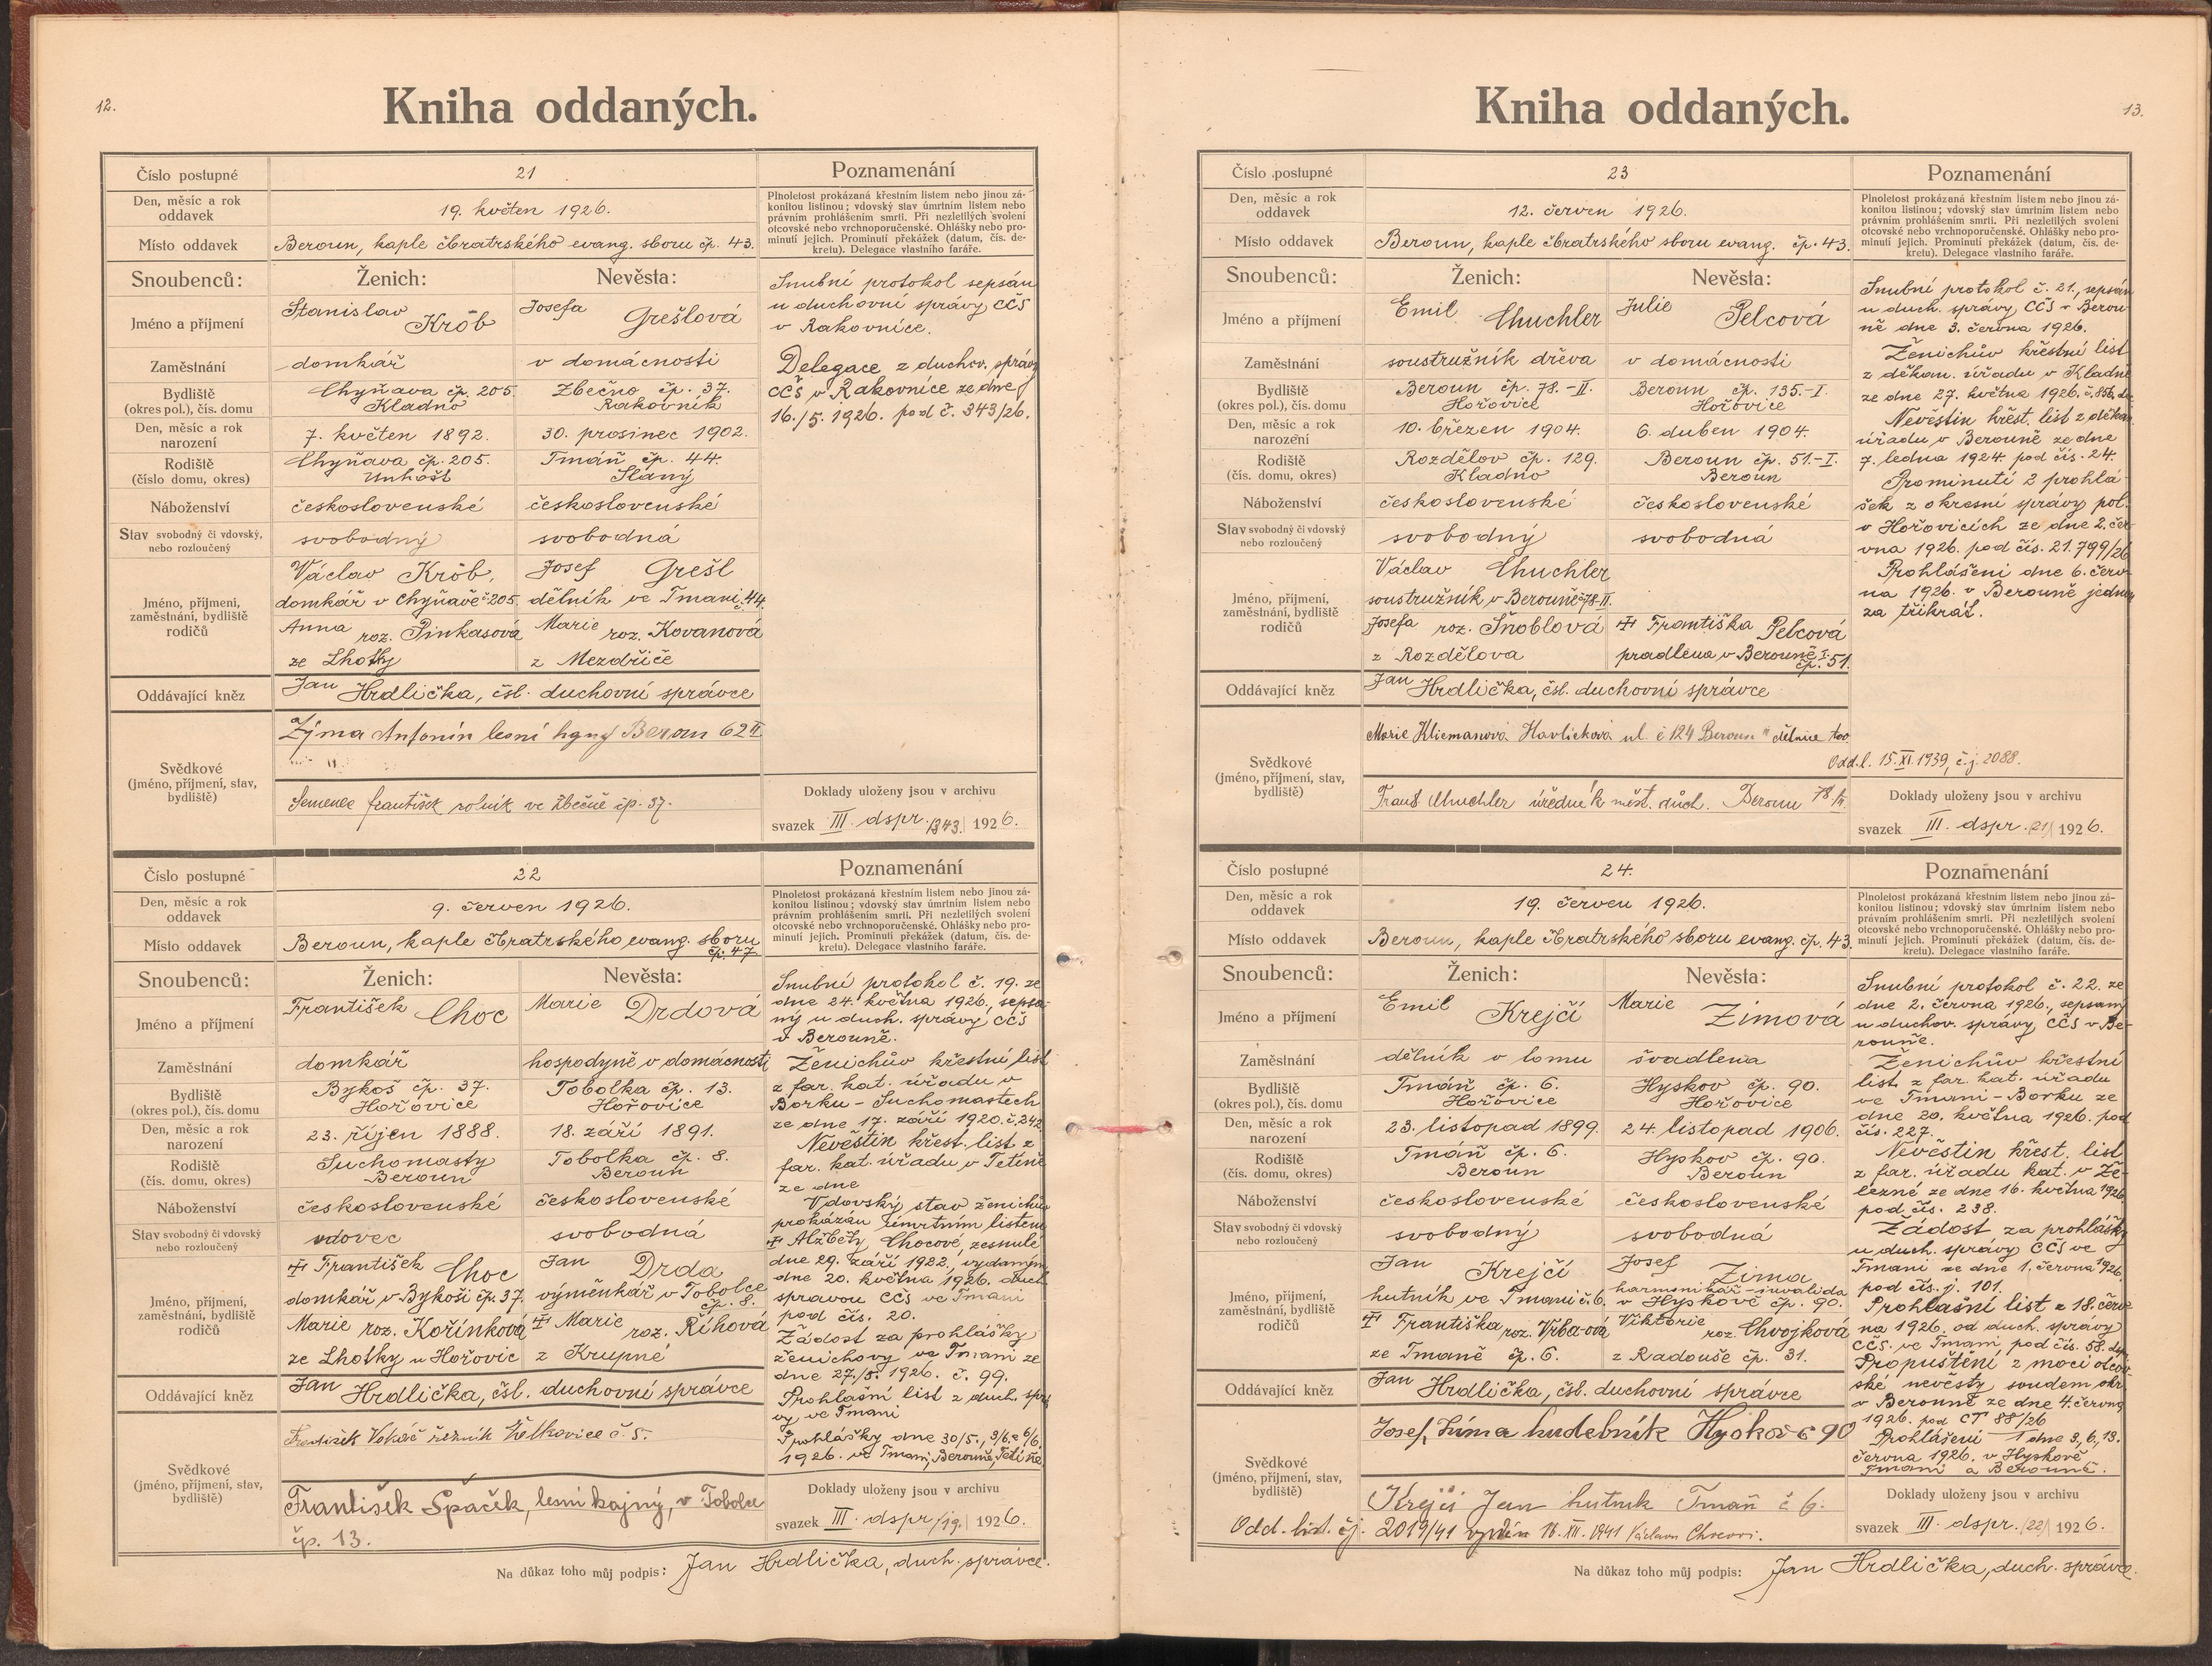 12.
Kniha oddaných.
Číslo postupné
21
Poznamenání
Den, měsíc a rok
oddavek
19. květen 1926.
Plnoletost prokázaná křestním listem nebo jinou zá-
konitou listinou; vdovský stav úmrtním listem nebo
právním prohlášením smrti. Při nezletilých svolení
otcovské nebo vrchnoporučenské. Ohlášky nebo pro-
minutí jejich. Prominutí překážek (datum, čís. de-
kretu). Delegace vlastního faráře.
Místo oddavek
Beroun, kaple čbratrského evang. sboru čp. 43.
Snoubenců:
Ženich:
Nevěsta:
Jméno a příjmení
Stanislav
Krôb
Josefa
Grešlová
Zaměstnání
domkář
v domácnosti
Bydliště
(okres pol.), čís. domu
Chyňava čp. 205.
Kladno
Zbečno čp. 37.
Rakovník
Den, měsíc a rok
narození
7. květen 1892.
30. prosinec 1902.
Rodiště
(číslo domu, okres)
Chyňava čp. 205.
Unhošt
Tmáň čp. 44.
Slaný
Náboženství
československé
československé
Stav svobodný či vdovský,
nebo rozloučený
svobodný
svobodná
Jméno, příjmení,
zaměstnání, bydliště
rodičů
Václav Krôb,
domkář v Chyňavě č 205.
Anna roz. Pinkasová
ze Lhotky
Josef Grešl
dělník ve Tmani č. 44.
Marie roz. Kovanová
z Mezdřiče
Oddávající kněz
Jan Hrdlička, čsl. duchovní správce
Svědkové
(jméno, příjmení, stav,
bydliště)
Zýma Antonín lesní hajný Beroun 62 II
Semenec František rolník ve Zbečně čp. 37.
Snubní protokol sepsán
u duchovní správy CČS
v Rakovníce.
Delegace z duchov. správy
CČS v Rakovníce ze dne
16./5. 1926. pod č. 343/26.
Doklady uloženy jsou v archivu
svazek III. dspr. /343./ 1926.
Číslo postupné
22
Poznamenání
Den, měsíc a rok
oddavek
9. červen 1926.
Plnoletost prokázaná křestním listem nebo jinou zá-
konitou listinou; vdovský stav úmrtním listem nebo
právním prohlášením smrti. Při nezletilých svolení
otcovské nebo vrchnoporučenské. Ohlášky nebo pro-
minutí jejich. Prominutí překážek (datum, čís. de-
kretu). Delegace vlastního faráře.
Místo oddavek
Beroun, kaple čbratrského evang. sboru
čp. 47
Snoubenců:
Ženich:
Nevěsta:
Jméno a příjmení
František Choc
Marie Drdová
Zaměstnání
domkář
hospodyně v domácnosti
Bydliště
(okres pol.), čís. domu
Bykoš čp. 37.
Hořovice
Tobolka čp. 13.
Hořovice
Den, měsíc a rok
narození
23. říjen 1888.
18. září 1891.
Rodiště
(čís. domu, okres)
Suchomasty
Beroun
Tobolka čp. 8.
Beroun
Náboženství
československé
československé
Stav svobodný či vdovský
nebo rozloučený
vdovec
svobodná
Jméno, příjmení,
zaměstnání, bydliště
rodičů
‡ František Choc
domkář v Bykoši čp. 37.
Marie roz. Kořínková
ze Lhotky u Hořovic
Jan Drda
výměnkář v Tobolce
čp. 8.
‡ Marie roz. Říhová
z Krupné
Oddávající kněz
Jan Hrdlička, čsl. duchovní správce
Svědkové
(jméno, příjmení, stav,
bydliště)
František Vokáč řezník Želkovice č. 5.
František Špaček, lesní hajný, v Tobolce
čp. 13.
Snubní protokol č. 19. ze
dne 24. května 1926, sepsa-
ný u duch. správy CČS
v Berouně.
Ženichův křestní list
z far. kat. úřadu v
Borku – Suchomastech
ze dne 17. září 1920. č. 242.
Nevěstin křest. list z
far. kat. úřadu v Tetíně
ze dne
Vdovský stav ženichův
prokázán úmrtním listem
‡ Alžběty Chocové, zesnulé
dne 29. září 1922., vydaným
dne 20. května 1926. duch.
správou CČS ve Tmani
pod čís. 20.
Žádost za prohlášky
ženichovy ve Tmani ze
dne 27./5. 1926. č. 99.
Prohlašní list z duch. sprá
vy ve Tmani
Prohlášky dne 30/5., 3/6. a 6/6.
1926. ve Tmani, Berouně, Tetíně.
Doklady uloženy jsou v archivu
svazek III. dspr /19./ 1926.
Na důkaz toho můj podpis: Jan Hrdlička, duch. správce.
13.
Kniha oddaných.
Číslo postupné
23
Poznamenání
Den, měsíc a rok
oddavek
12. červen 1926.
Plnoletost prokázaná křestním listem nebo jinou zá-
konitou listinou; vdovský stav úmrtním listem nebo
právním prohlášením smrti. Při nezletilých svolení
otcovské nebo vrchnoporučenské. Ohlášky nebo pro-
minutí jejich. Prominutí překážek (datum, čís. de-
kretu). Delegace vlastního faráře.
Místo oddavek
Beroun, kaple čbratrského sboru evang. čp. 43.
Snoubenců:
Ženich:
Nevěsta:
Jméno a příjmení
Emil Chuchler
Julie Pelcová
Zaměstnání
soustružník dřeva
v domácnosti
Bydliště
(okres pol.), čís. domu
Beroun čp. 78.-II.
Hořovice
Beroun čp. 135.-I.
Hořovice
Den, měsíc a rok
narození
10. březen 1904.
6. duben 1904.
Rodiště
(čís. domu, okres)
Rozdělov čp. 129.
Kladno
Beroun čp. 51.-I.
Beroun
Náboženství
československé
československé
Stav svobodný či vdovský
nebo rozloučený
svobodný
svobodná
Jméno, příjmení,
zaměstnání, bydliště
rodičů
Václav Chuchler
soustružník v Berouně č 78-II.
Josefa roz. Šnoblová
z Rozdělova
‡ Františka Pelcová
pradlena v Berouně I.
čp. 51.
Oddávající kněz
Jan Hrdlička, čsl. duchovní správce
Svědkové
(jméno, příjmení, stav,
bydliště)
Marie Kliemanová Havlíčkova ul. č 124 Beroun II dělnice
Odd. l. 15. XI. 1939, č. j. 2088.
Frant Chuchler úředník měst. důch. Beroun 78. II.
Snubní protokol č. 21., sepsán
u duch. správy CČS v Berou-
ně dne 3. června 1926.
Ženichův křestní list
z děkan. úřadu v Kladně
ze dne 27. května 1926. č. 856.
Nevěstin křest. list z děkan.
úřadu v Berouně ze dne
7. ledna 1924. pod čís. 24.
Prominutí 2 prohlá-
šek z okresní správy pol.
v Hořovicích ze dne 2. čer-
vna 1926. pod čís. 21.799/26
Prohlášeni dne 6. červ-
na 1926. v Berouně jednou
za třikrát.
Doklady uloženy jsou v archivu
svazek III. dspr. /21/ 1926.
Číslo postupné
24.
Poznamenání
Den, měsíc a rok
oddavek
19. červen 1926.
Plnoletost prokázaná křestním listem nebo jinou zá-
konitou listinou; vdovský stav úmrtním listem nebo
právním prohlášením smrti. Při nezletilých svolení
otcovské nebo vrchnoporučenské. Ohlášky nebo pro-
minutí jejich. Prominutí překážek (datum, čís. de-
kretu). Delegace vlastního faráře.
Místo oddavek
Beroun, kaple čbratrského sboru evang. čp. 43.
Snoubenců:
Ženich:
Nevěsta:
Jméno a příjmení
Emil Krejčí
Marie Zimová
Zaměstnání
dělník v lomu
švadlena
Bydliště
(okres pol.), čís. domu
Tmáň čp. 6.
Hořovice
Hyskov čp. 90.
Hořovice
Den, měsíc a rok
narození
23. listopad 1899.
24. listopad 1906.
Rodiště
(čís. domu, okres)
Tmáň čp. 6.
Beroun
Hyskov čp. 90.
Beroun
Náboženství
československé
československé
Stav svobodný či vdovský
nebo rozloučený
svobodný
svobodná
Jméno, příjmení,
zaměstnání, bydliště
rodičů
Jan Krejčí
hutník ve Tmani č. 6.
‡ Františka roz. Vrba-ová
ze Tmaně čp. 6.
Josef Zima
harmonikář – invalida
v Hyskově čp. 90.
Viktorie roz. Chvojková
z Radouše čp. 31.
Oddávající kněz
Jan Hrdlička, čsl. duchovní správce
Svědkové
(jméno, příjmení, stav,
bydliště)
Josef Zima hudebník Hyskov č 90
Krejčí Jan hutník Tmaň č 6.
Odd. list. čj. 2019/41 vydán 18. XII. 1941
Snubní protokol č. 22. ze
dne 2. června 1926., sepsaný
u duchov. správy CČS v Be-
rouně.
Ženichův křestní
list z far. kat. úřadu
ve Tmani – Borku ze
dne 20. května 1926. pod
čís. 227.
Nevěstin křest. list
z far. úřadu kat. v Že-
lezné ze dne 16. května 1926.
pod čís. 238.
Žádost za prohlášky
u duch. správy CČS ve
Tmani ze dne 1. června 1926.
pod čís. j. 101.
Prohlašní list z 18. červ-
na 1926. od duch. správy
CČS. ve Tmani pod čís. 58.
Propuštění z moci otcov-
ské nevěsty soudem okr.
v Berouně ze dne 4. června
1926. pod CT 88/26
Prohlášeni dne 3., 6., 13.
června 1926. v Hyskově
Tmani a Berouně.
Doklady uloženy jsou v archivu
svazek III. dspr. /22/ 1926.
Na důkaz toho můj podpis: Jan Hrdlička, duch. správce.